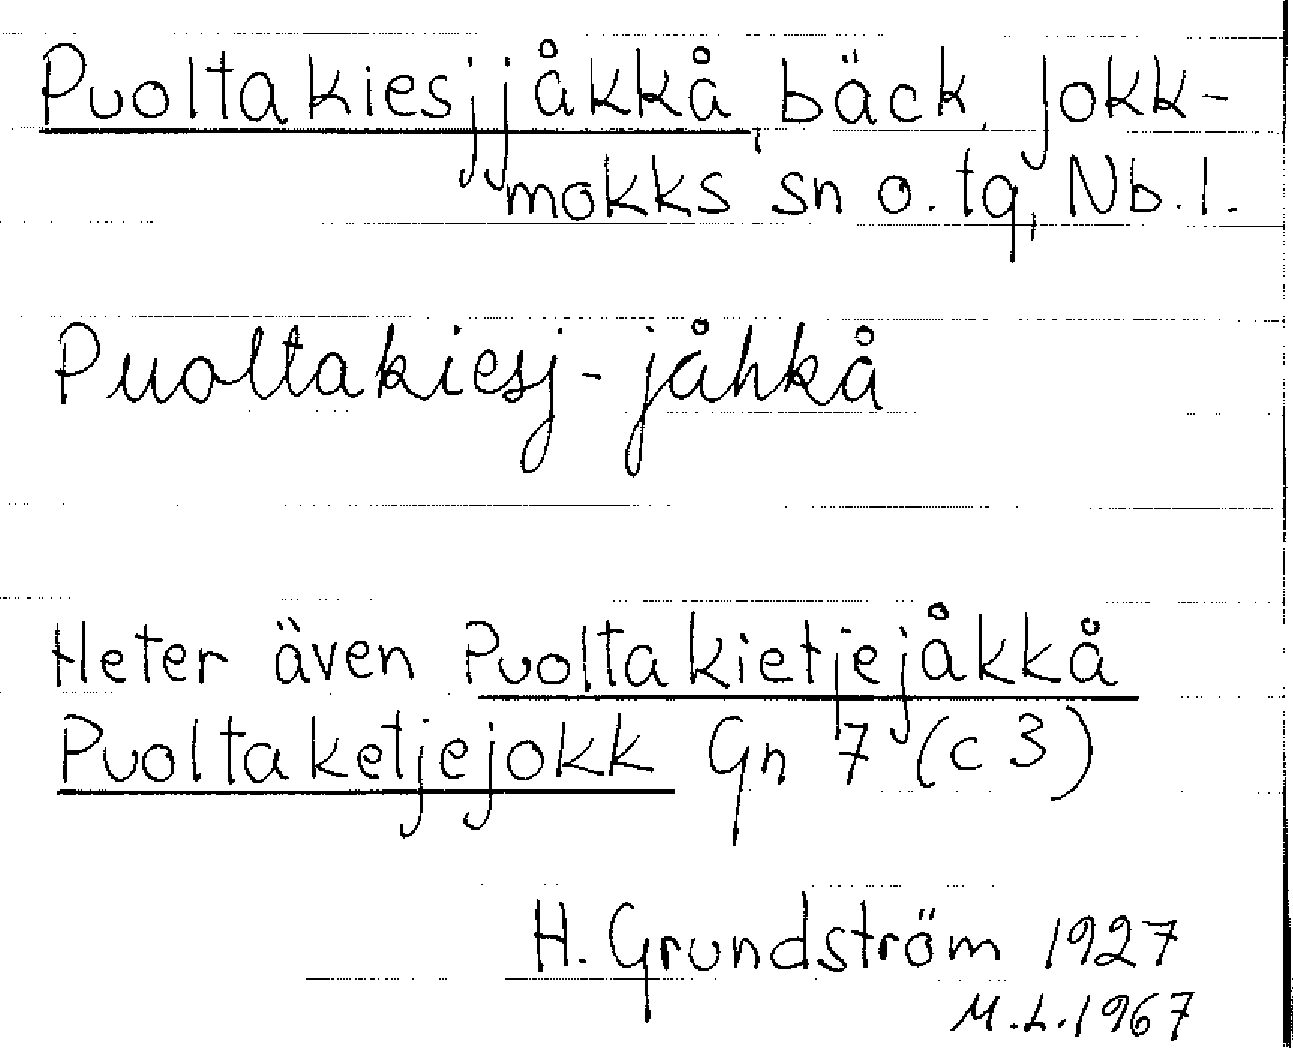 Puoltakiesjjåkkå, bäck, Jokk-
mokks sn o. tg, Nb. l.
Puoltakiesj-jåhkå
Heter även Puoltakietjejåkkå
Puoltaketjejokk Gn 7 (c 3)
H. Grundström 1927
M.L. 1967